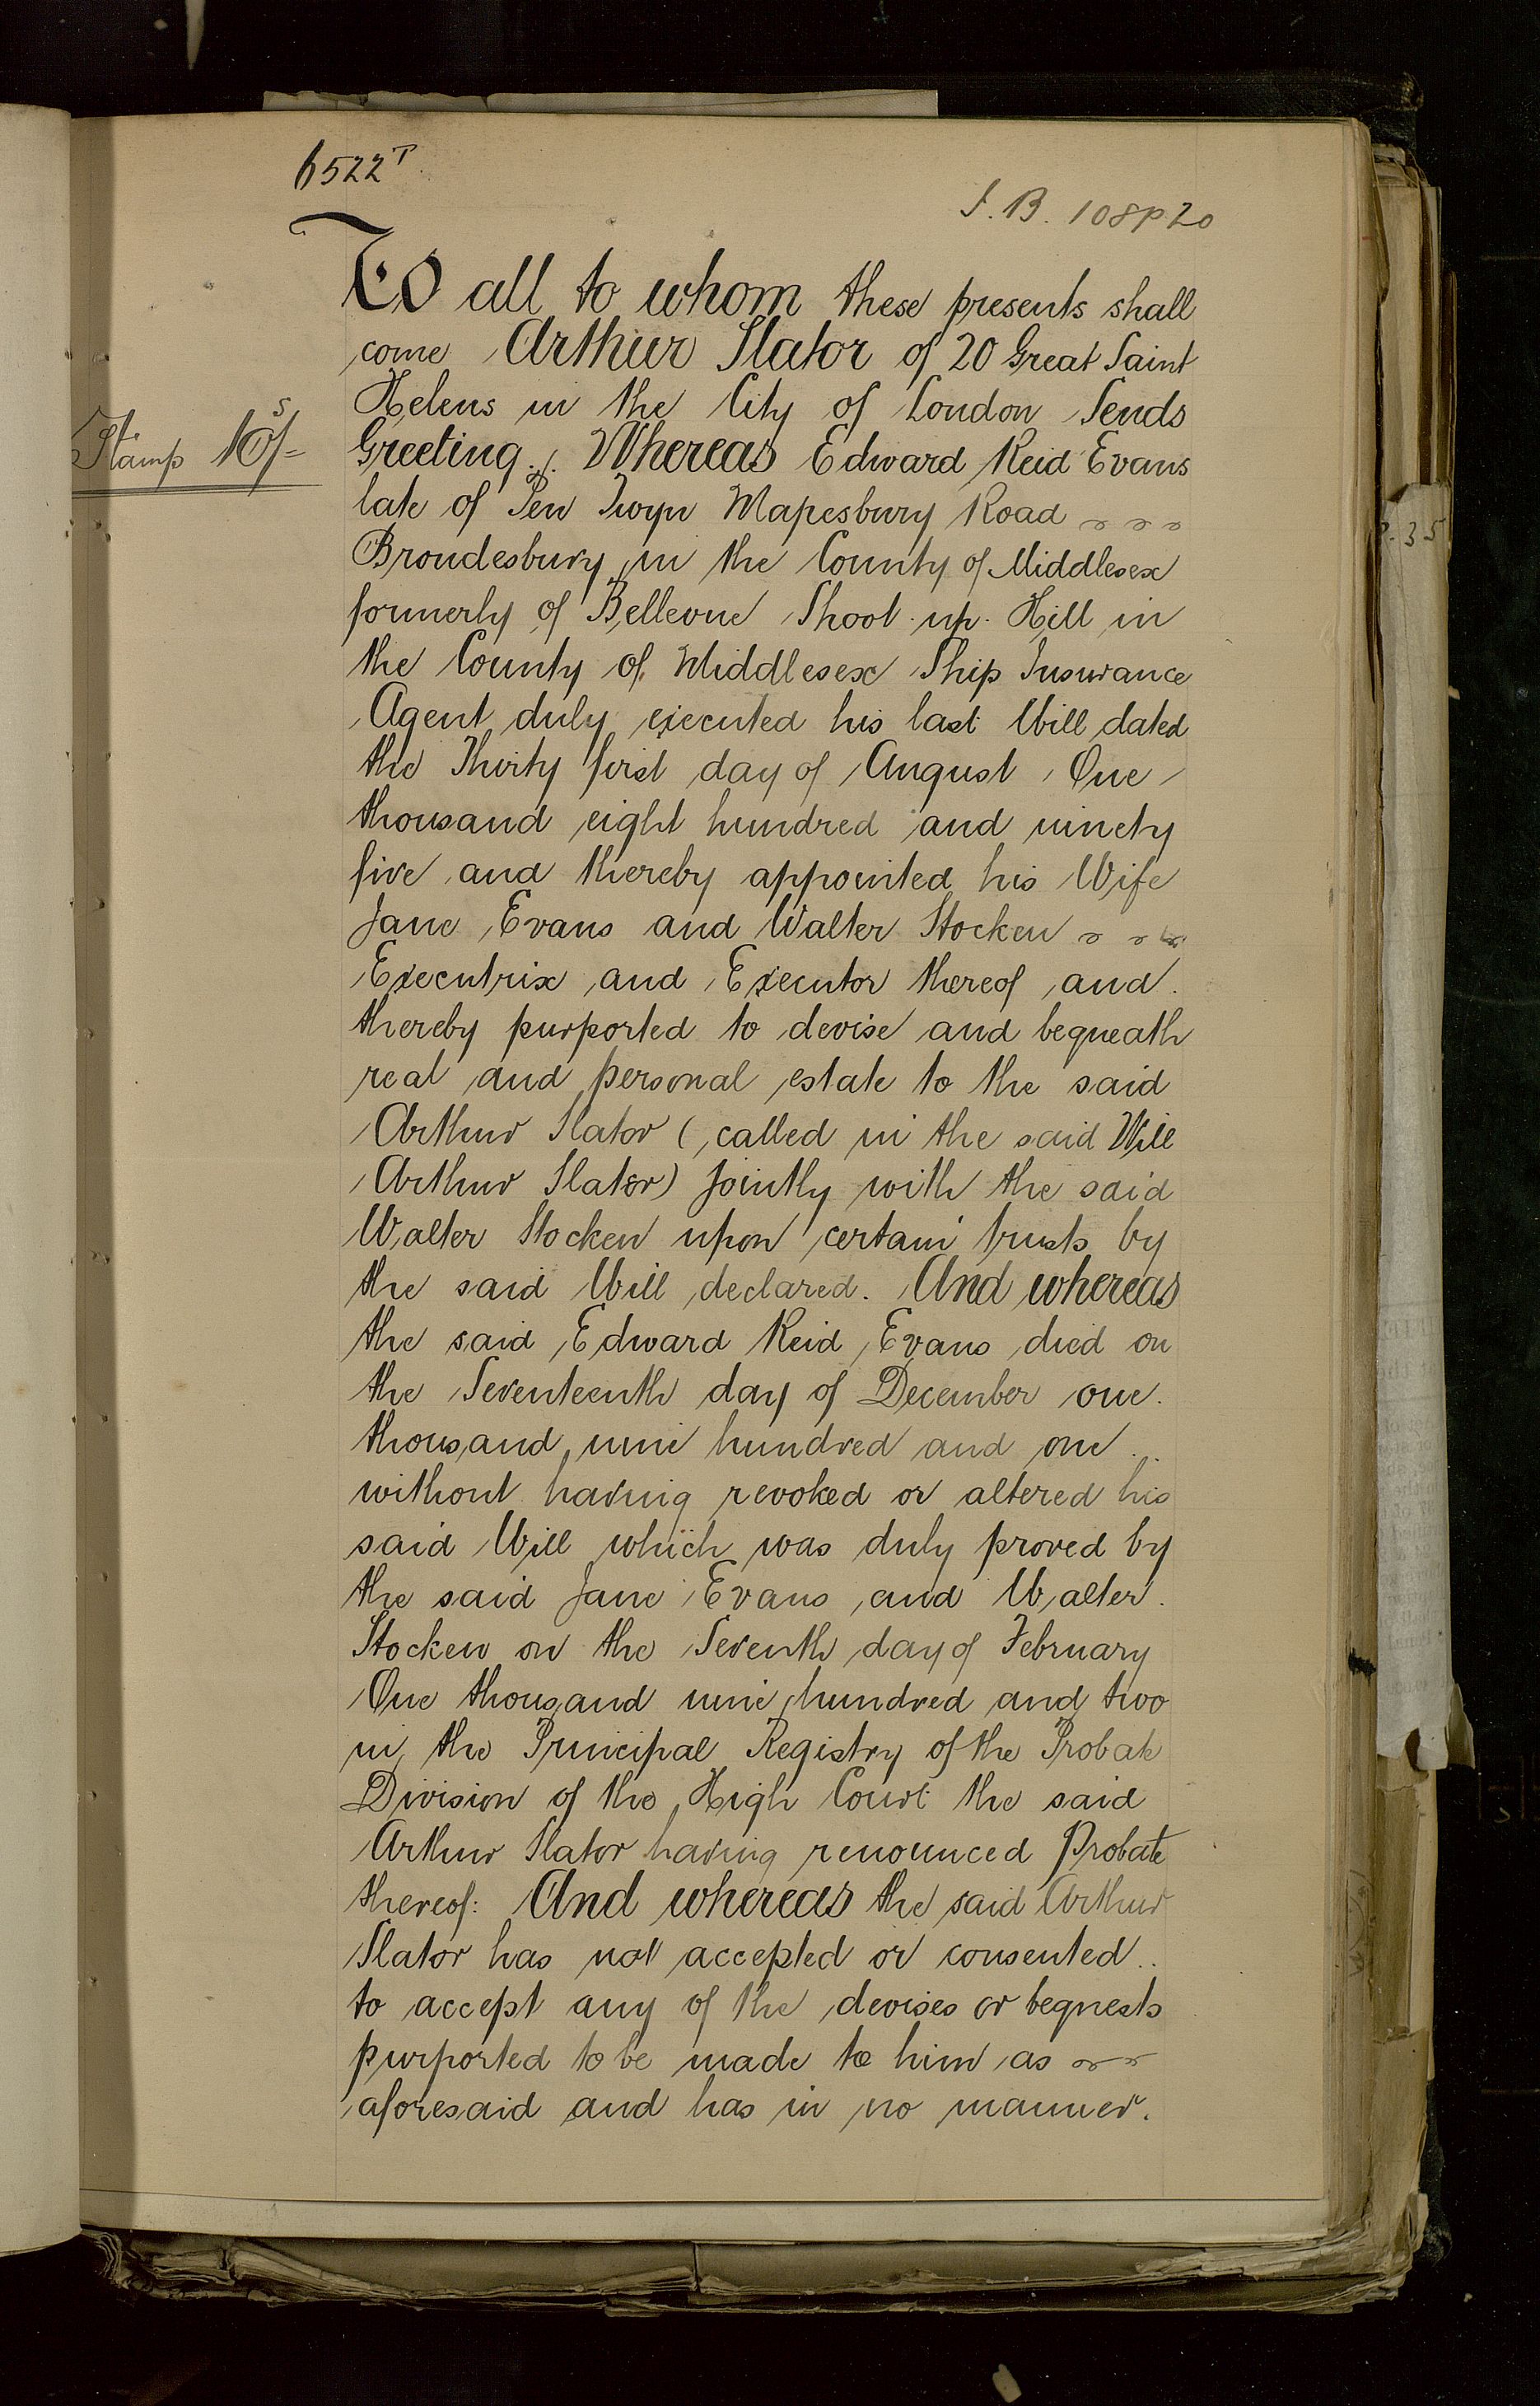 6522T
S. B. 108 p 20
To all to whom these presents shall
come Arthur Slator of 20 Great Saint
Helens in the City of London Sends
Stamp 10s/=
Greeting. Whereas Edward Reid Evans
late of Pen Twyn Mapesbury Road
Brondesbury in the County of Middlesex
formerly of Bellevue Shoot up Hill in
the County of Middlesex Ship Insurance
Agent duly executed his last Will dated
the Thirty first day of August One
thousand eight hundred and ninety
five and thereby appointed his Wife
Jane Evans and Walter Stocken
Executrix and Executor thereof and
thereby purported to devise and bequeath
real and personal estate to the said
Arthur Slator (called in the said Will
Arthur Slater) jointly with the said
Walter Stocken upon certain trusts by
the said Will declared. And whereas
the said Edward Reid Evans died on
the Seventeenth day of December one
thousand nine hundred and one
without having revoked or altered his
said Will which was duly proved by
the said Jane Evans and Walter
Stocken on the Seventh day of February
One thousand nine hundred and two
in the Principal Registry of the Probate
Division of the High Court the said
Arthur Slator having renounced Probate
thereof: And whereas the said Arthur
Slator has not accepted or consented
to accept any of the devises or bequests
purported to be made to him as
aforesaid and has in no manner.